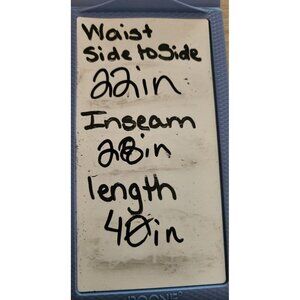 Waist
Side to Side
22in
Inseam
28in
length
40in